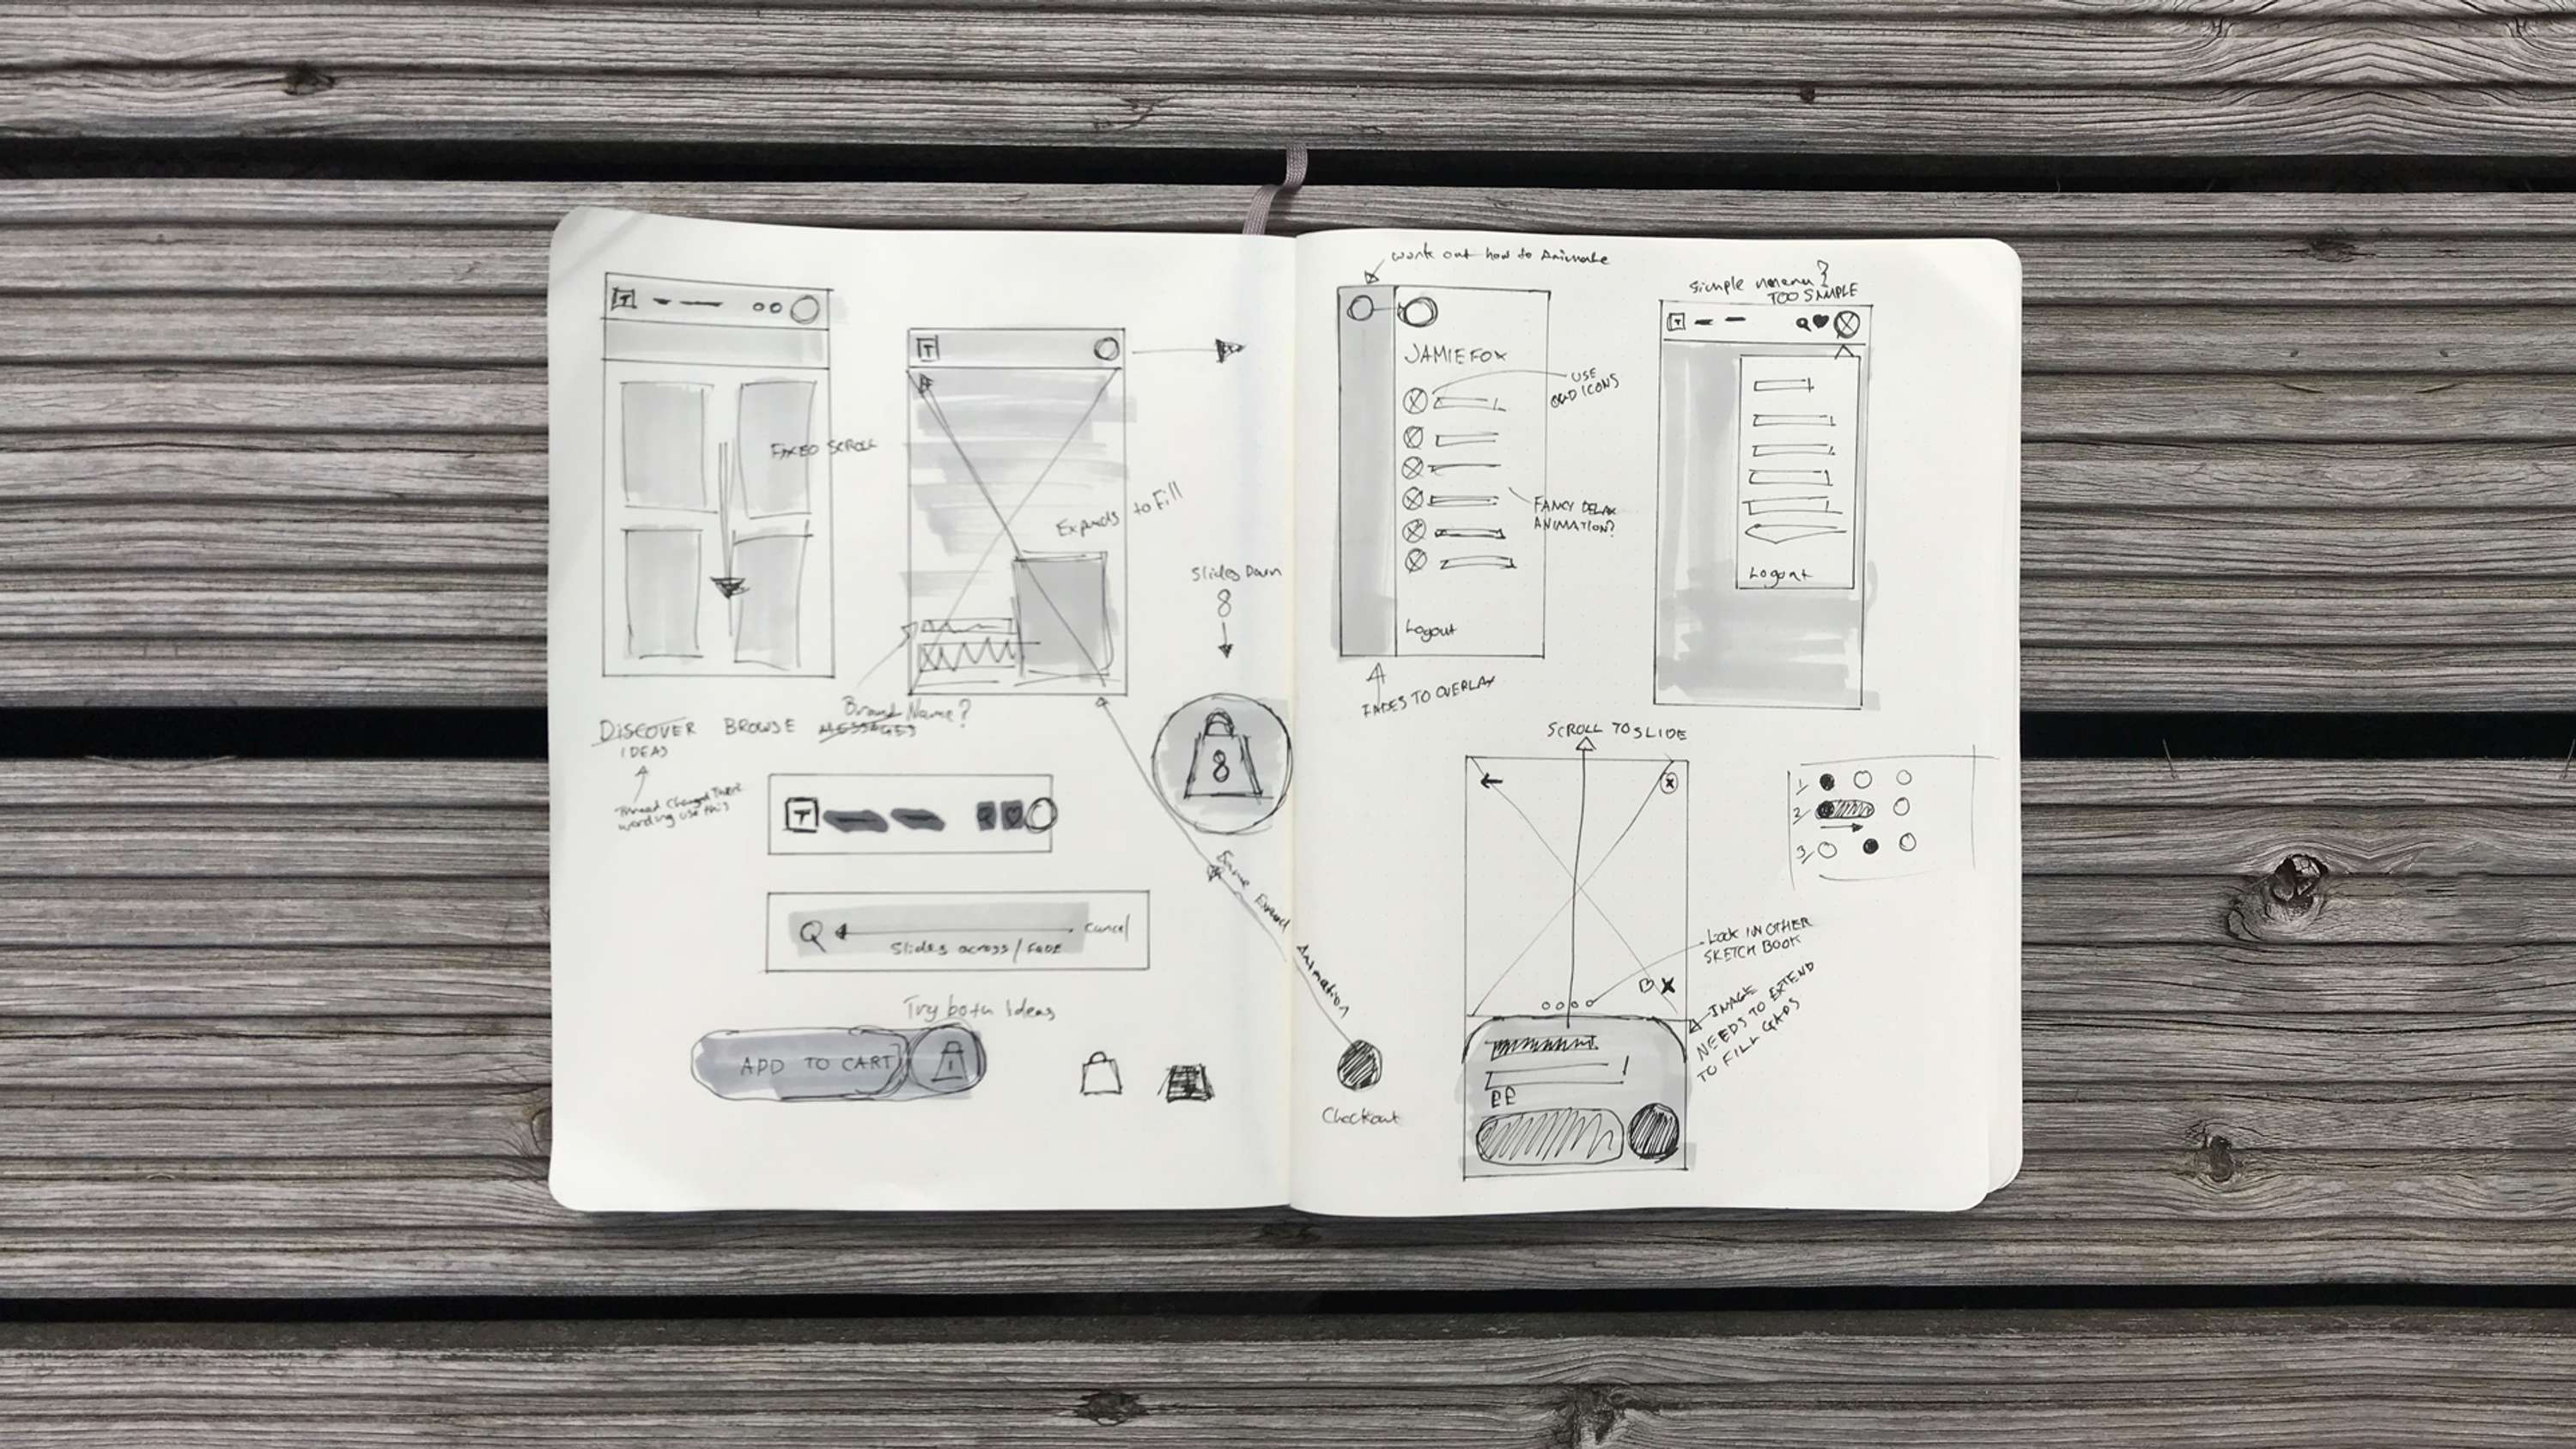 T
FIXED SCROLL
DISCOVER BROWSE MESSAGES
IDEAS
wording use this
T
Expands to Fill
Brand Name?
Slides Down
8
8
T
Q
Cancel
Slides across / FADE
Try both Ideas
ADD TO CART
1
Same Expand Animation
Checkout
work out how to Animate
JAMIE FOX
USE
OLD ICONS
FANCY DELAY
ANIMATION?
Logout
FADES TO OVERLAY
Simple menu?
TOO SIMPLE
T
Logout
SCROLL TO SLIDE
1
2
3
LOOK IN OTHER
SKETCH BOOK
IMAGE
NEEDS TO EXTEND
TO FILL GAPS